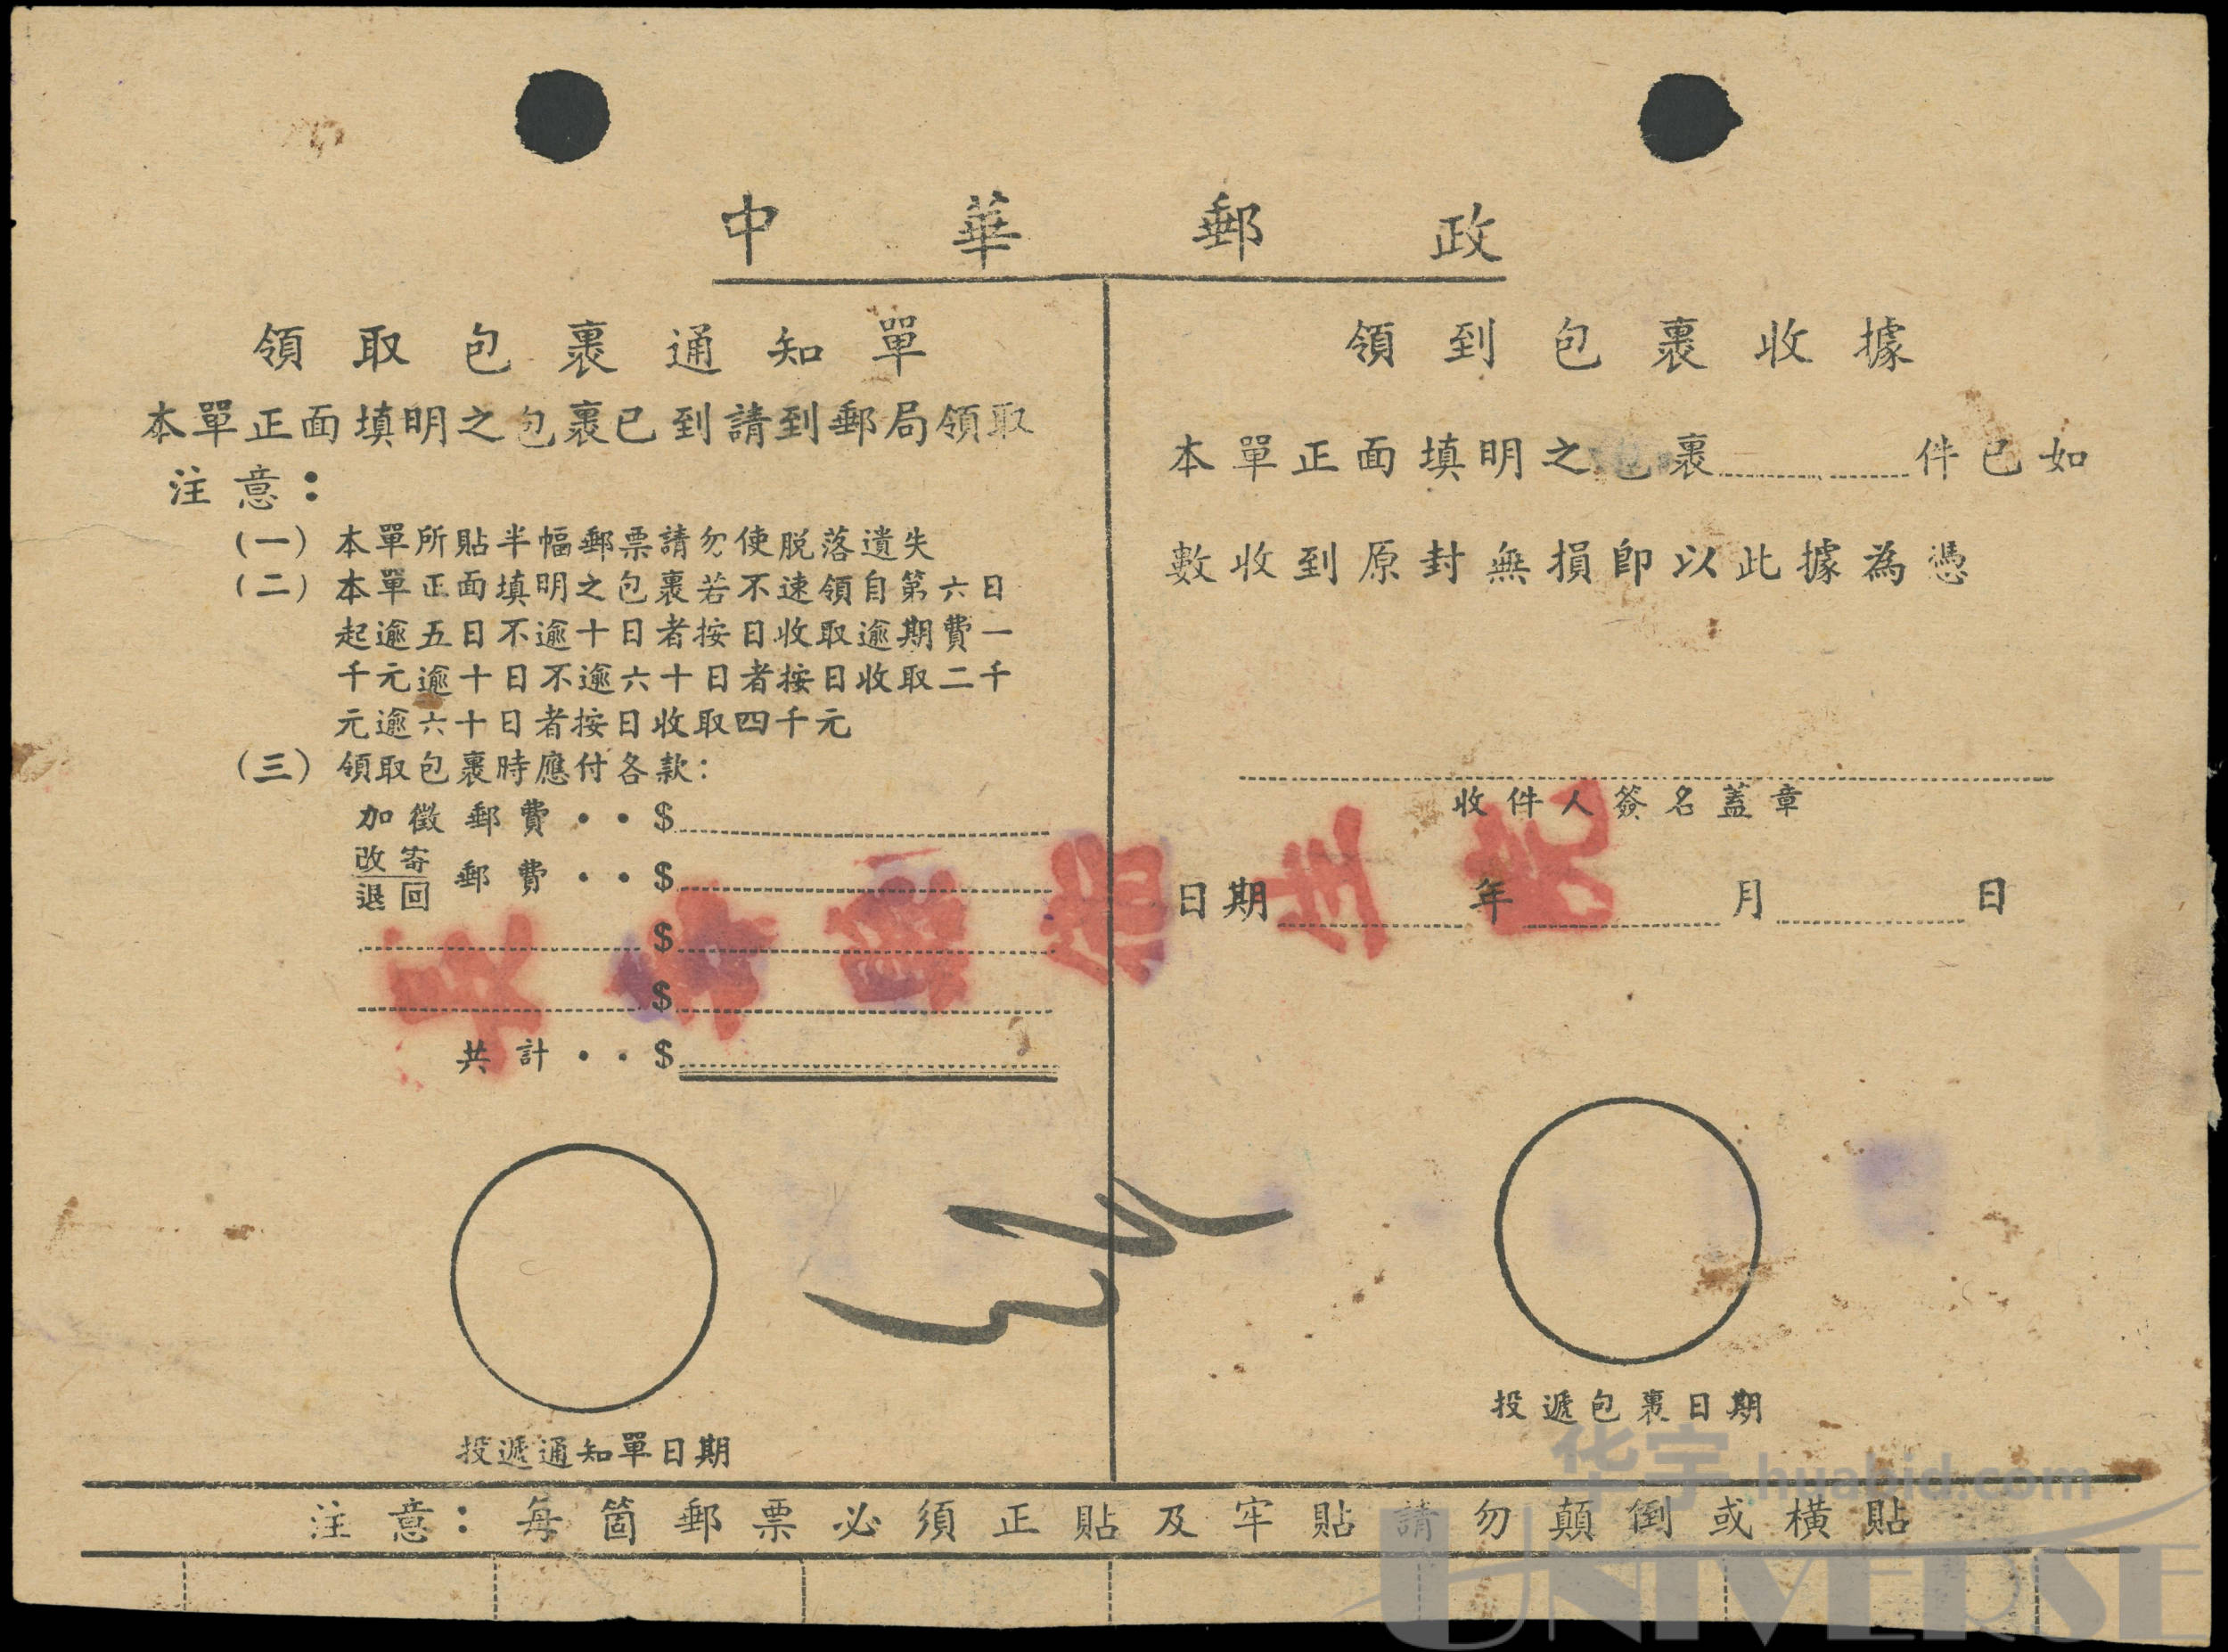 中華郵政
領取包裹通知單
本單正面填明之包裹已到請到郵局領取
注意：
(一) 本單所貼半幅郵票請勿使脫落遺失
(二) 本單正面填明之包裹若不速領自第六日
起逾五日不逾十日者按日收取逾期費一
千元逾十日不逾六十日者按日收取二千
元逾六十日者按日收取四千元
(三) 領取包裹時應付各款：
加徵郵費・・$
改寄
退回
郵費・・$
$
$
共計・・$
投遞通知單日期
領到包裹收據
本單正面填明之包裹 件已如
數收到原封無損即以此據為憑
收件人簽名蓋章
日期 年 月 日
投遞包裹日期
注意：每箇郵票必須正貼及牢貼請勿顛倒或橫貼
华宇 huabid.com
UNIVERSE